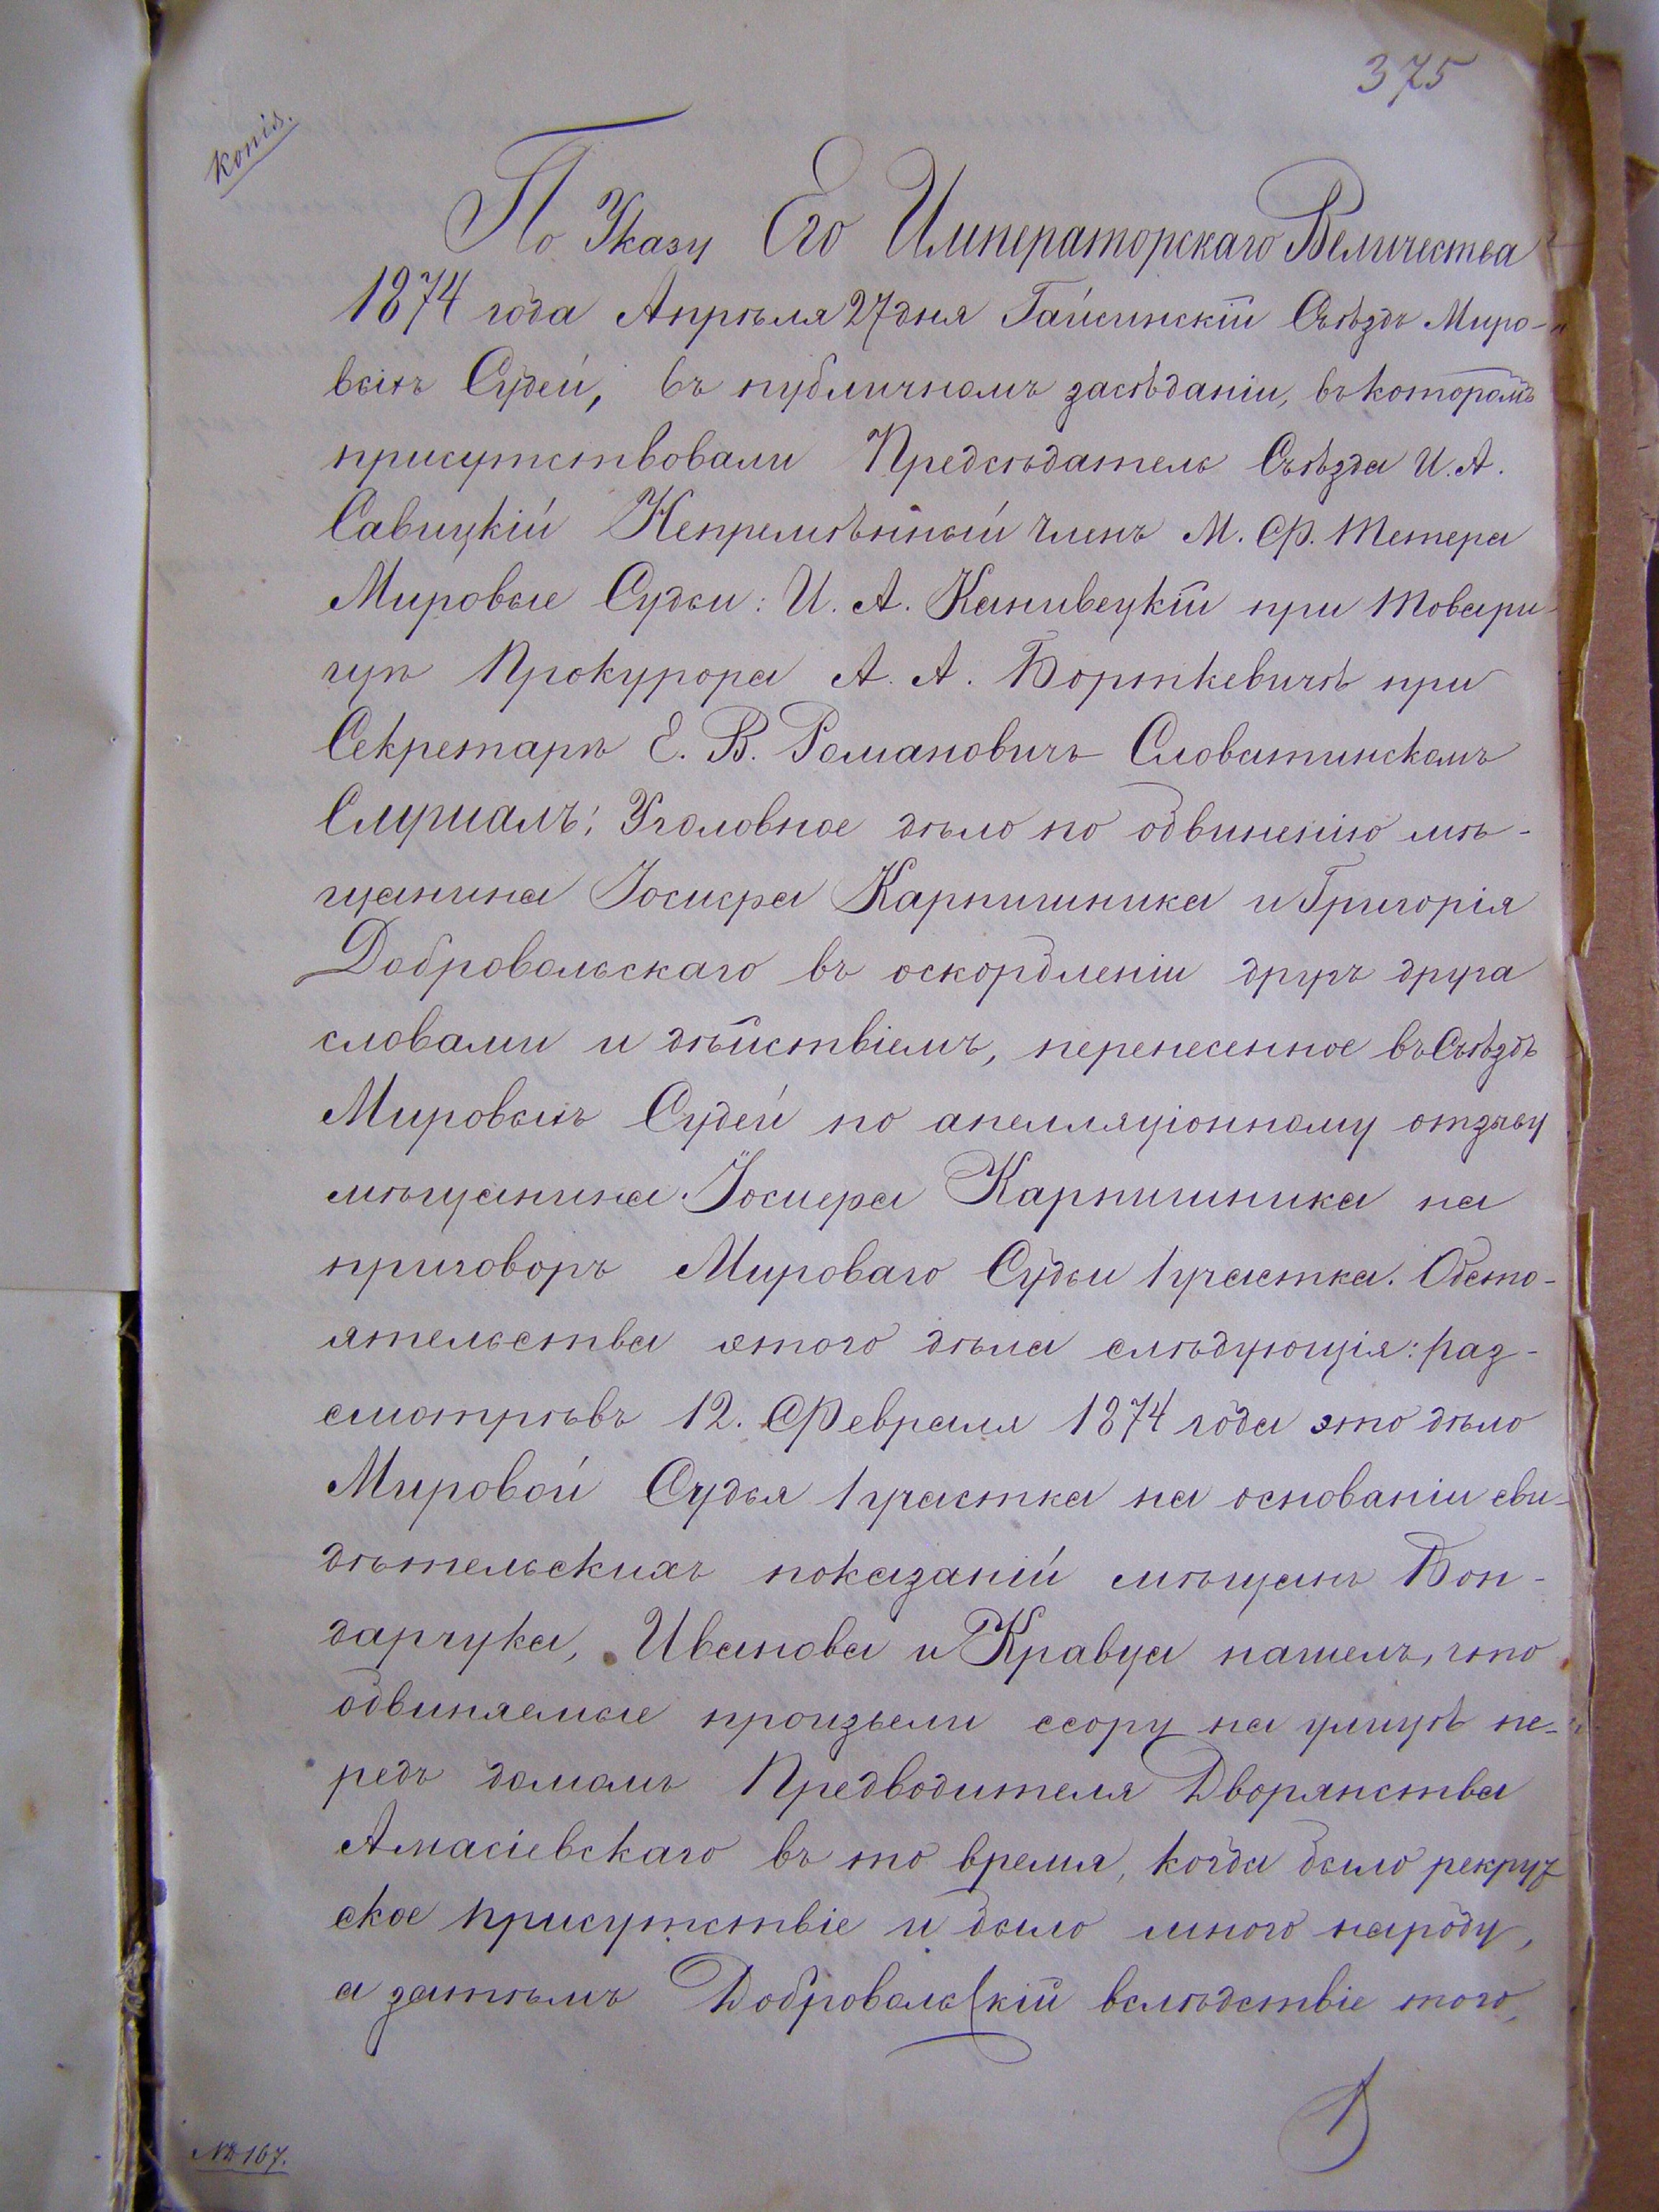 375
копія.
По Указу Его Императорскаго Величества
1874 года Апрѣля 27 дня Гайсинскій Съѣздъ Миро-
выхъ Судей, въ публичномъ засѣданіи, въ которомъ
присутствовали Предсѣдатель Съѣзда И. А.
Савицкій Непремѣнный членъ М. Ф. Тетера
Мировые Судьи: И. А. Канивецкій при Товари-
щѣ Прокурора А. А. Борткевичѣ при
Секретарѣ Е. В. Романовичъ Словатинскомъ
Слушалъ: Уголовное дѣло по обвиненію мѣ-
щанина Іосифа Карпишника и Григорія
Добровольскаго въ оскорбленіи другъ друга
словами и дѣйствіемъ, перенесенное въ Съѣздъ
Мировыхъ Судей по апелляціонному отзыву
мѣщанина Іосифа Карпишника на
приговоръ Мироваго Судьи 1 участка. Обсто-
ятельства этого дѣла слѣдующія: раз-
смотрѣвъ 12. Февраля 1874 года это дѣло
Мировой Судья 1 участка на основаніи сви-
дѣтельскихъ показаній мѣщанъ Бон-
дарчука, Иванова и Кравца нашелъ, что
обвиняемые произвели ссору на улицѣ пе-
редъ домомъ Предводителя Дворянства
Амасіевскаго въ то время, когда было рекрут
ское присутствіе и было много народу,
а затѣмъ Добровольскій вслѣдствіе того,
№ 167.